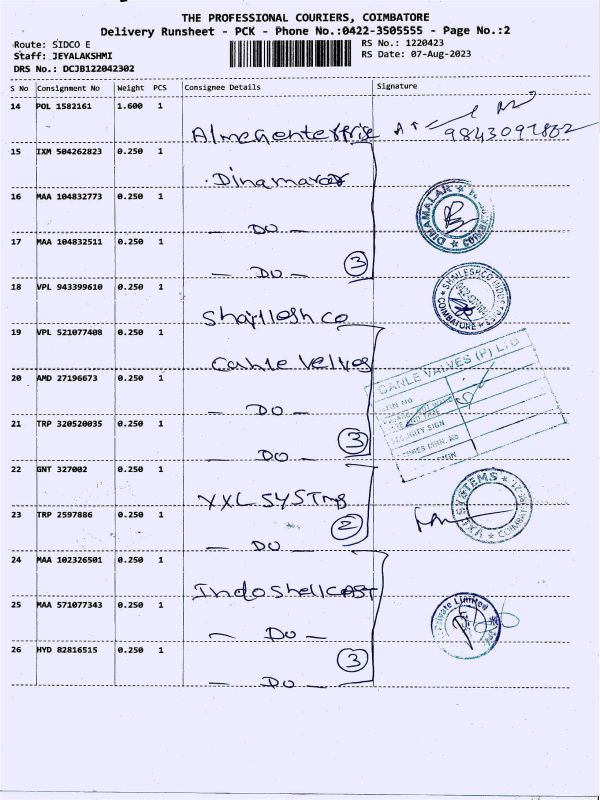 THE PROFESSIONAL COURIERS, COIMBATORE
Delivery Runsheet - PCK - Phone No.:0422-3505555 - Page No.:2
Route: SIDCO E
Staff: JEYALAKSHMI
DRS No.: DCJB122042302
RS No.: 1220423
RS Date: 07-Aug-2023
S No Consignment No Weight PCS Consignee Details Signature
14 POL 1582161 1.600 1
Almegenterprise 9843097802
15 IXM 504262823 0.250 1
Dinamalar
16 MAA 104832773 0.250 1
— DO —
DINAMALAR
17 MAA 104832511 0.250 1
— DO — 3
18 VPL 943399610 0.250 1
Shajllesh co
SHAILESHCO INDUSTRIES
COIMBATORE
19 VPL 521077408 0.250 1
Canle Velves
CANLE VALVES (P) LTD
20 AMD 27196673 0.250 1
— DO —
SECURITY SIGN
21 TRP 320520035 0.250 1
— DO — 3
22 GNT 327002 0.250 1
YXL SYSTms
SYSTEMS
COIMBATORE
23 TRP 2597886 0.250 1
— DO — 2
24 MAA 102326501 0.250 1
Indoshellcast
25 MAA 571077343 0.250 1
— DO —
Private Limited
26 HYD 82816515 0.250 1
— DO — 3